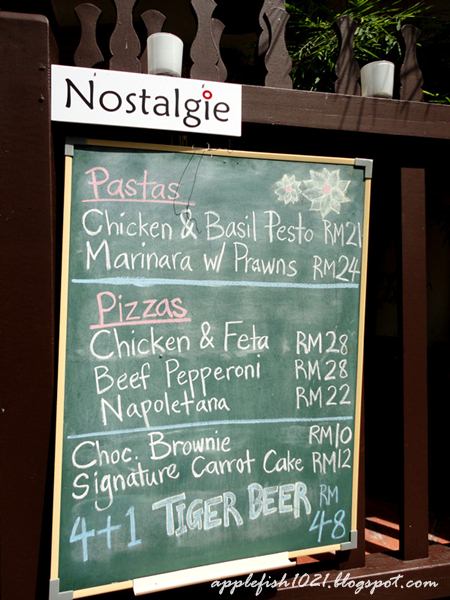 Nostalgie
Pastas
Chicken & Basil Pesto RM21
Marinara w/ Prawns RM24
Pizzas
Chicken & Feta RM28
Beef Pepperoni RM28
Napoletana RM22
Choc. Brownie RM10
Signature Carrot Cake RM12
4+1 TIGER BEER RM
48
applefish1021.blogspot.com